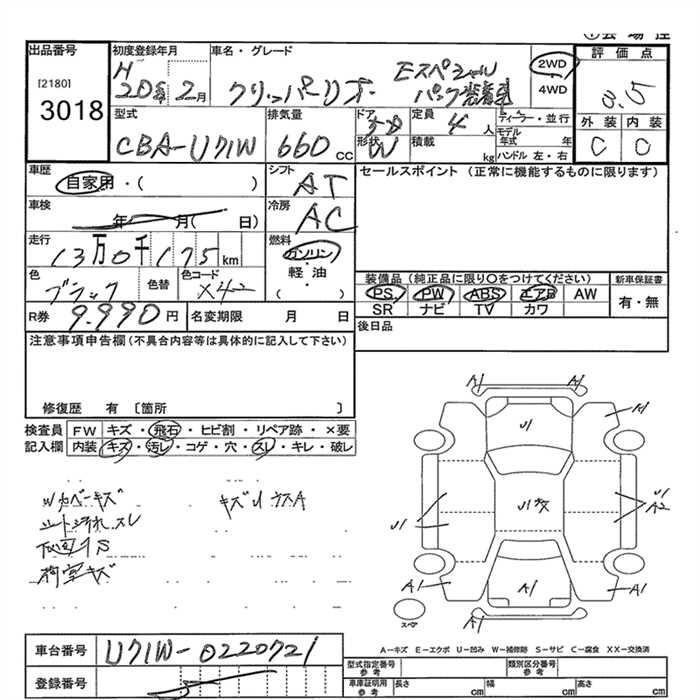 出品番号
[2180]
3018
初度登録年月
H
20年 2月
車名・グレード
クリッパーリオ
Eスペシャル
パック装着車
2WD
4WD
評価点
3.5
外装 内装
C C
型式
CBA-U71W
排気量
660 cc
ドア
形状
W
定員
4 人
積載
kg
ディーラー・並行
モデル
年式 年
ハンドル 左・右
車歴
自家用・( )
シフト
AT
セールスポイント (正常に機能するものに限ります)
車検
年 月( 日)
冷房
AC
走行
13万0千175km
燃料
ガソリン
軽・油
( )
色
ブラック
色替
色コード
X42
装備品 (純正品に限り○をつけてください)
PS PW ABS エアB AW
SR ナビ TV カワ
新車保証書
有・無
R券 9.990円
名変期限 月 日
後日品
注意事項申告欄 (不具合内容等は具体的に記入して下さい)
修復歴 有 〔箇所 〕
検査員 FW キズ・飛石・ヒビ割・リペア跡・×要
記入欄 内装 キズ・汚レ・コゲ・穴・スレ・キレ・破レ
シート汚れ スレ
下回りS
荷室キズ
キズU
A1 A1
A1
U1
U1
U1
U1
A2
A1
A1
A1
A1
スペア
A-キズ E-エクボ U-凹み W-補修跡 S-サビ C-腐食 XX-交換済
車台番号
U71W-0220721
登録番号
型式指定番号
参考
類別区分番号
参考
車庫証明用
参考
長さ cm
幅 cm
高さ cm